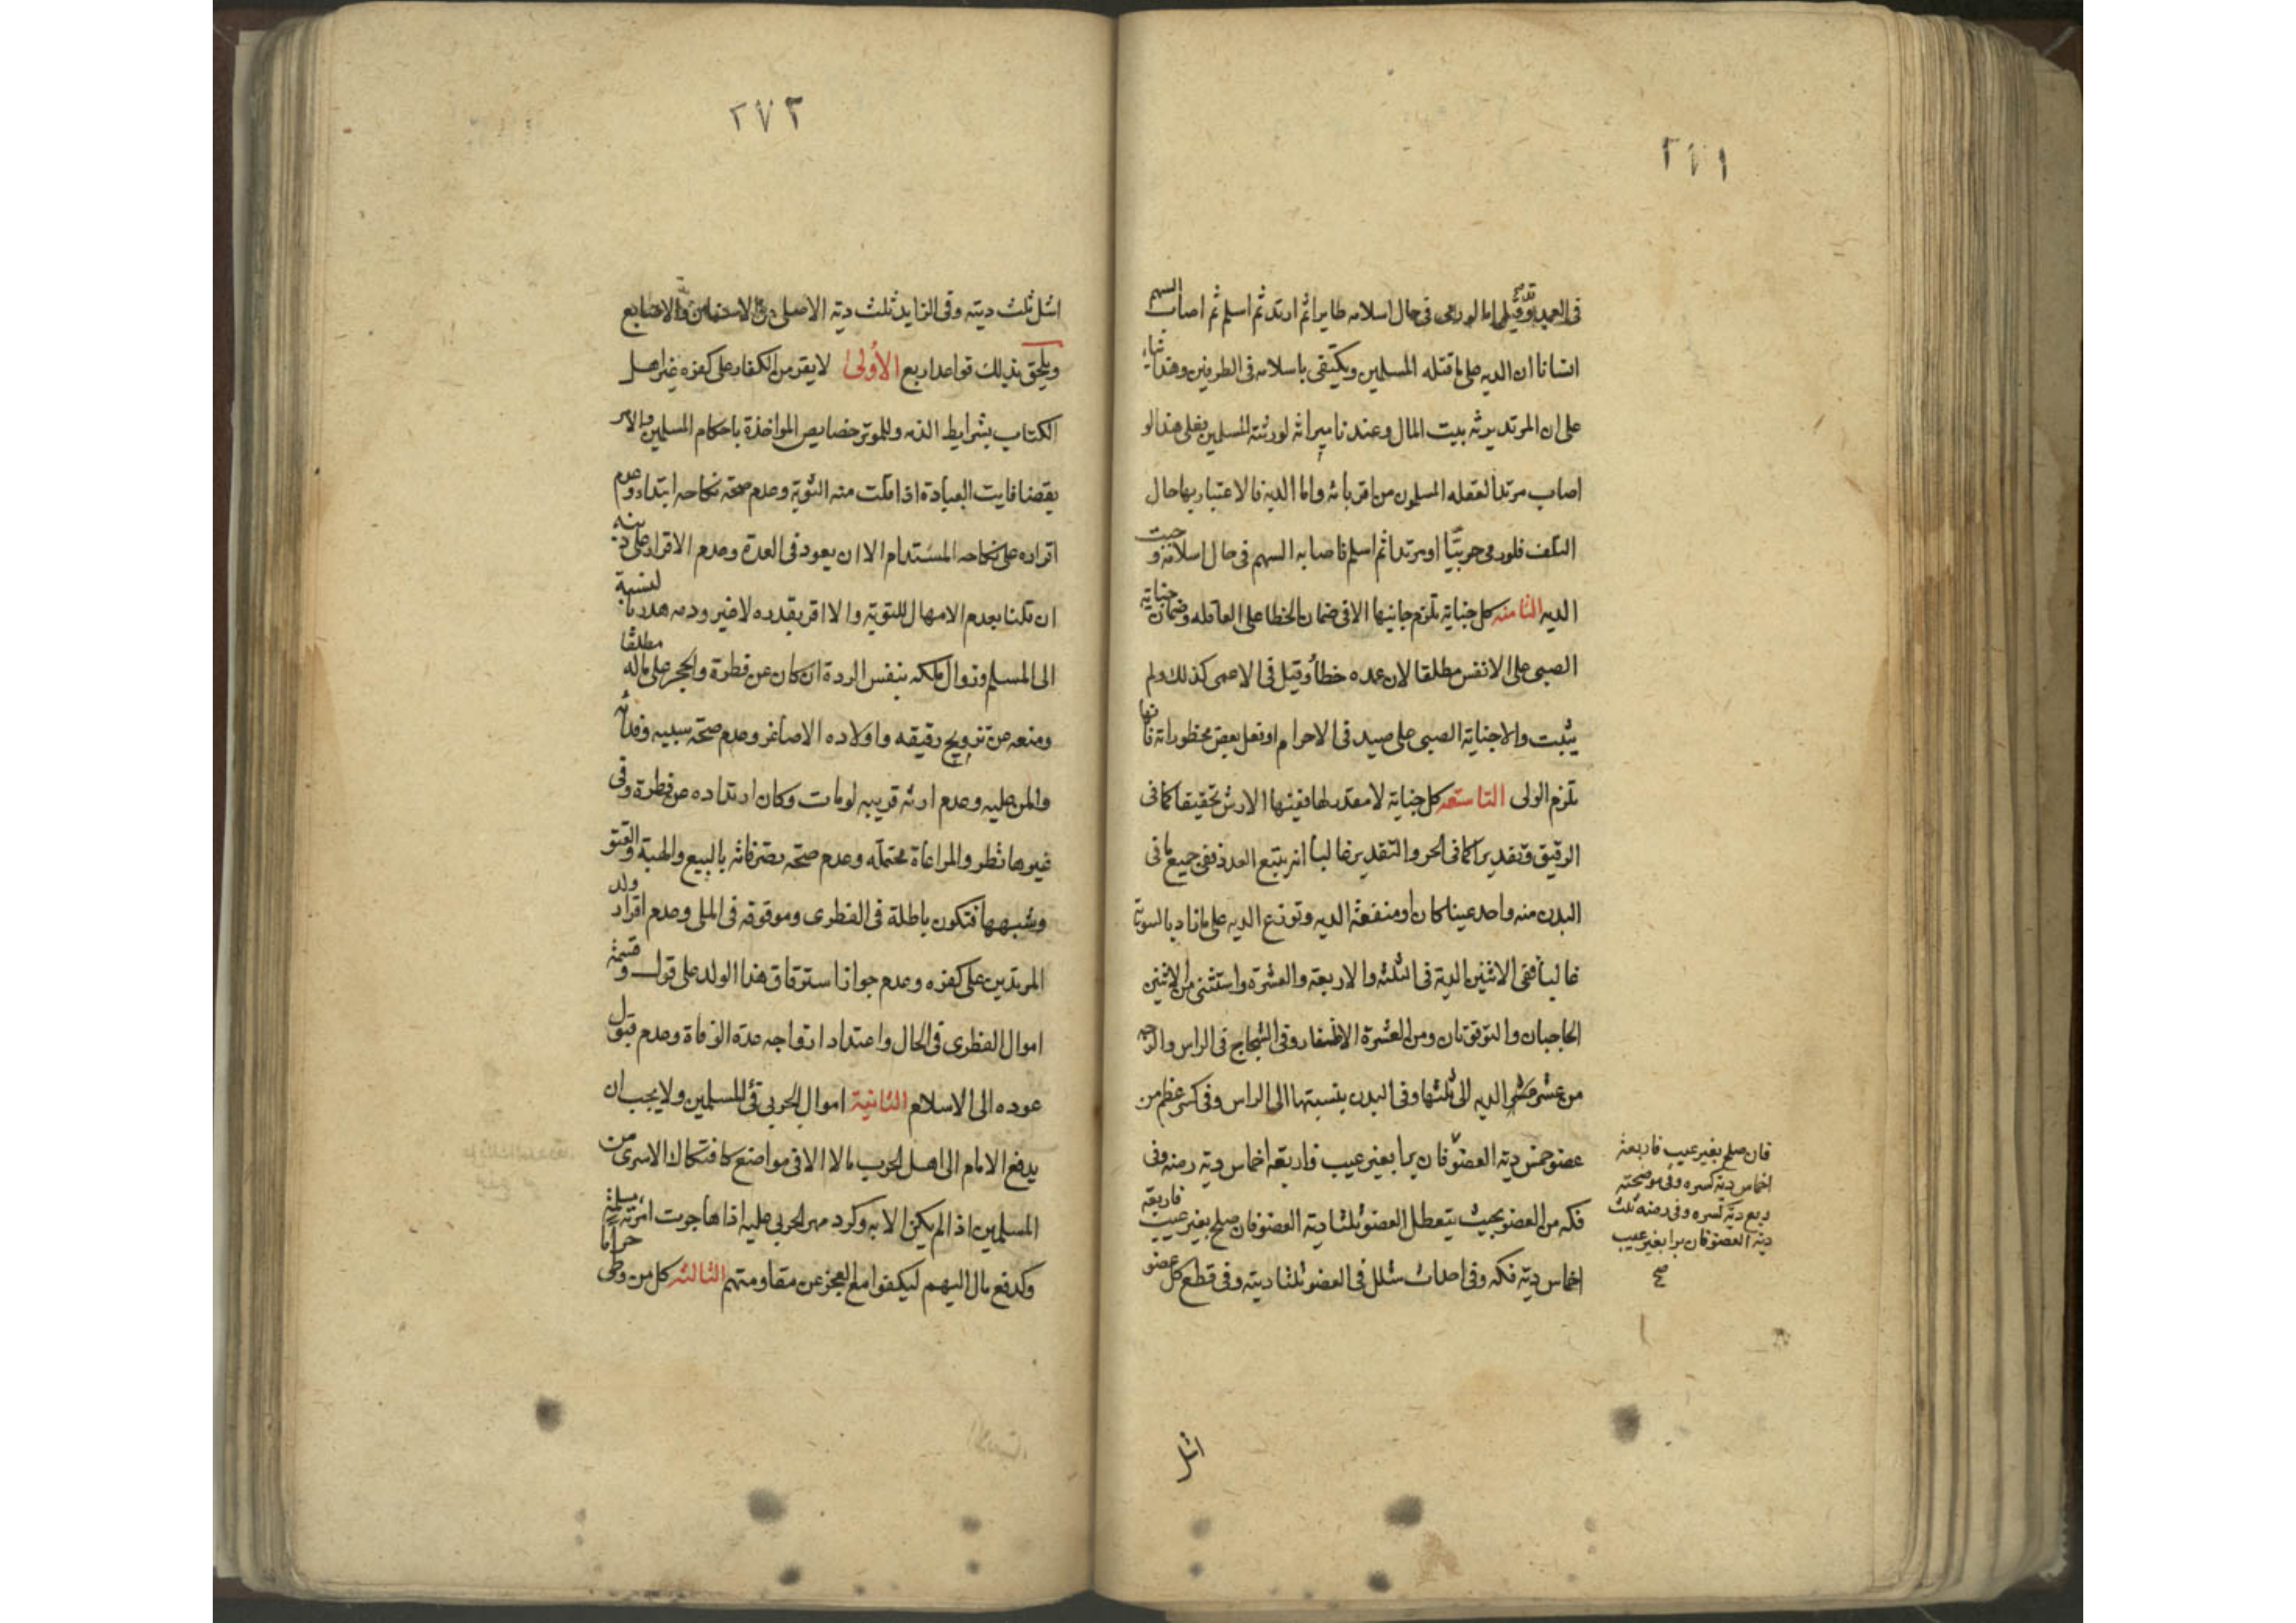 ٢٧١
في العمد وقيل اما لو رمى في حال اسلامه طايرا ثم ارتد ثم اسلم ثم اصاب السهم
انسانا ان الديه على ما قتله المسلمين ويكتفى باسلامه في الطرفين وهذا بناء
على ان المرتد يرثه بيت المال وعندنا ميراثه لورثته المسلمين فعلى هذا لو
اصاب مرتدا لعقله المسلمون من اقربائه واما الدية فالاعتبار بها حال
التلف فلو رمى حربيّا او مرتدا ثم اسلم فاصابه السهم في حال اسلامه وجبت
الديه الثامنه كل جناية تلزم جانيها الا في ضمان الخطا على العاقله وضمان جناية
الصبي على الانفس مطلقا لان عمده خطأ وقيل في الاعمى كذلك ولم
يثبت والا جناية الصبي على صيد في الاحرام او فعل بعض محظوراته فانها
تلزم الولى التاسعه كل جناية لا مقدر لها ففيها الارش تحقيقا كما في
الرقيق وتقديرا كما في الحر والتقدير غالبا انه يتبع العدد ففي جميع ما في
البدن منه واحد عينا كان او منفعة الديه وتوزع الديه على ما زاد بالسوية
غالبا ففي الاثنين الدية في الثلثه والاربعة والعشرة واستثنى من الاثنين
الحاجبان والترقوتان ومن العشرة الاظفار وفي الشجاج في الراس والوجه
من عشر عشر الديه الى ثلثها وفي البدن بنسبتها الى الراس وفي كسر عظم من
عضو خمس ديه العضو فان برا بغير عيب فاربعة اخماس دية رضه وفي
فكه من العضو بحيث يتعطل العضو ثلثا دية العضو فان صلح بغير عيب فاربعة
اخماس دية فكه وفي احداث شلل في العضو ثلثا ديته وفي قطع كل عضو
فان صلح بغير عيب فاربعة
اخماس دية كسره وفي موضحته
ربع دية كسره وفي رضه ثلث
دية العضو فان برا بغير عيب
صح
اشل
٢٧٢
اشل ثلث ديته وفي الزايد ثلث دية الاصلى من الاسنان والاصابع
ويلحق بذلك قواعد اربع الأولى لا يقر من الكفار على كفره غير اهل
الكتاب بشرايط الذمه وللمرتد خصايص المواخذة باحكام المسلمين والامر
بقضا فايت العبادة اذا قلت منه التوبة وعدم صحة نكاحه ابتداء وعدم
اقراره على نكاحه المستدام الا ان يعود في العدة وعدم الاقرار على دينه
ان قلنا بعدم الامهال للتوبة والا اقر بقدره لا غير ودمه هدر بالنسبة
الى المسلم وزوال ملكه بنفس الردة ان كان عن فطرة والحجر على ماله مطلقا
ومنعه من تزويج رقيقه واولاده الاصاغر وعدم صحة سبيه وفدائه
والمن عليه وعدم ارثه قريبه لو مات وكان ارتداده عن فطرة وفي
غيرها نظر والمراعاة محتمله وعدم صحة تصرفاته بالبيع والهبة والعتق
وشبهها فتكون باطلة في الفطرى وموقوفه في الملى وعدم اقرار ولد
المرتدين على كفره وعدم جواز استرقاق هذا الولد على قول وقسمة
اموال الفطرى في الحال واعتداد ازواجه عدة الوفاة وعدم قبول
عوده الى الاسلام الثانية اموال الحربي فئ للمسلمين ولا يجب ان
يدفع الامام الى اهل الحرب مالا الا في مواضع كافتكاك الاسرى من
المسلمين اذا لم يكن الا به وكرد مهر الحربي عليه اذا هاجرت امرئته مسلمة
وكدفع مال اليهم ليكفوا مع العجز عن مقاومتهم الثالثه كل من وطى حراما